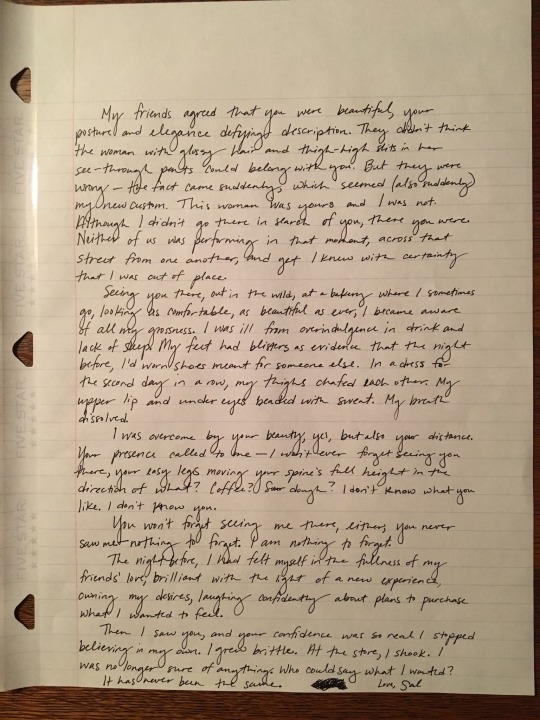 My friends agreed that you were beautiful, your
posture and elegance defying description. They didn't think
the woman with glossy hair and thigh-high slits in her
see-through pants could belong with you. But they were
wrong — the fact came suddenly, which seemed (also suddenly)
my new custom. This woman was yours and I was not.
Although I didn't go there in search of you, there you were.
Neither of us was performing in that moment, across that
street from one another, and yet I knew with certainty
that I was out of place.
Seeing you there, out in the wild, at a bakery where I sometimes
go, looking as comfortable, as beautiful as ever, I became aware
of all my grossness. I was ill from overindulgence in drink and
lack of sleep. My feet had blisters as evidence that the night
before, I'd worn shoes meant for someone else. In a dress for
the second day in a row, my thighs chafed each other. My
upper lip and under eyes beaded with sweat. My breath
dissolved.
I was overcome by your beauty, yes, but also your distance.
Your presence called to me — I won't ever forget seeing you
there, your easy legs moving your spine's full height in the
direction of what? Coffee? Sour dough? I don't know what you
like. I don't know you.
You won't forget seeing me there, either, you never
saw me — nothing to forget. I am nothing to forget.
The night before, I had felt myself in the fullness of my
friends' love, brilliant with the light of a new experience,
owning my desires, laughing confidently about plans to purchase
what I wanted to feel.
Then I saw you, and your confidence was so real I stopped
believing in my own. I grew brittle. At the store, I shook. I
was no longer sure of anything. Who could say what I wanted?
It has never been the same. Love, Sal
FIVE STAR
FIVE STAR
FIVE STAR
FIVE STAR